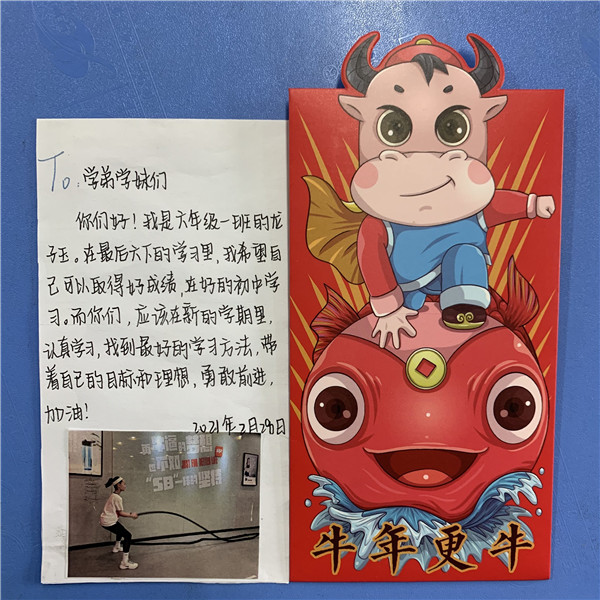 To:学弟学妹们
你们好！我是六年级一班的龙
子玉。在最后六下的学习里，我希望自
己可以取得好成绩，在好的初中学
习。而你们，应该在新的学期里，
认真学习，找到最好的学习方法，带
着自己的目标和理想，勇敢前进，
加油！
2021年2月28日
牛年更牛